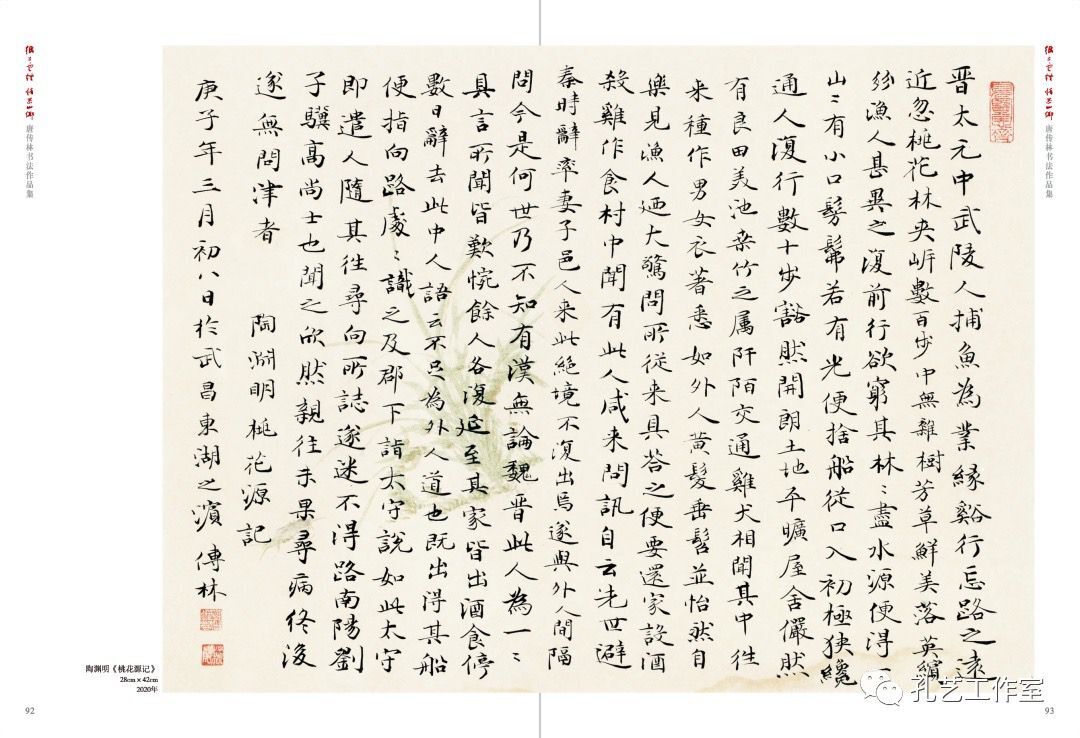 晋太元中武陵人捕魚為業緣谿行忘路之遠
近忽桃花林夹岸數百步中無雜樹芳草鮮美落英繽
紛漁人甚異之復前行欲窮其林〻盡水源便得一
山〻有小口髣髴若有光便捨船從口入初極狭纔
通人復行數十步豁然開朗土地平曠屋舍儼然
有良田美池桒竹之属阡陌交通雞犬相聞其中往
来種作男女衣著悉如外人黄髮垂髫並怡然自
樂見漁人迺大驚問所從来具荅之便要還家設酒
殺雞作食村中聞有此人咸来問訊自云先世避
秦時辭率妻子邑人来此絶境不復出焉遂與外人間隔
問今是何世乃不知有漢無論魏晋此人為一〻
具言所聞皆歎惋餘人各復延至其家皆出酒食停
數日辭去此中人語云不足為外人道也既出得其船
便指向路處〻識之及郡下詣太守說如此太守
即遣人隨其往尋向所誌遂迷不得路南陽劉
子驥高尚士也聞之欣然親往未果尋病终後
遂無問津者 陶淵明桃花源記
庚子年三月初八日於武昌東湖之濱 傳林
唐传林书法作品集
唐传林书法作品集
陶渊明《桃花源记》
28cm×42cm
2020年
92
93
孔艺工作室